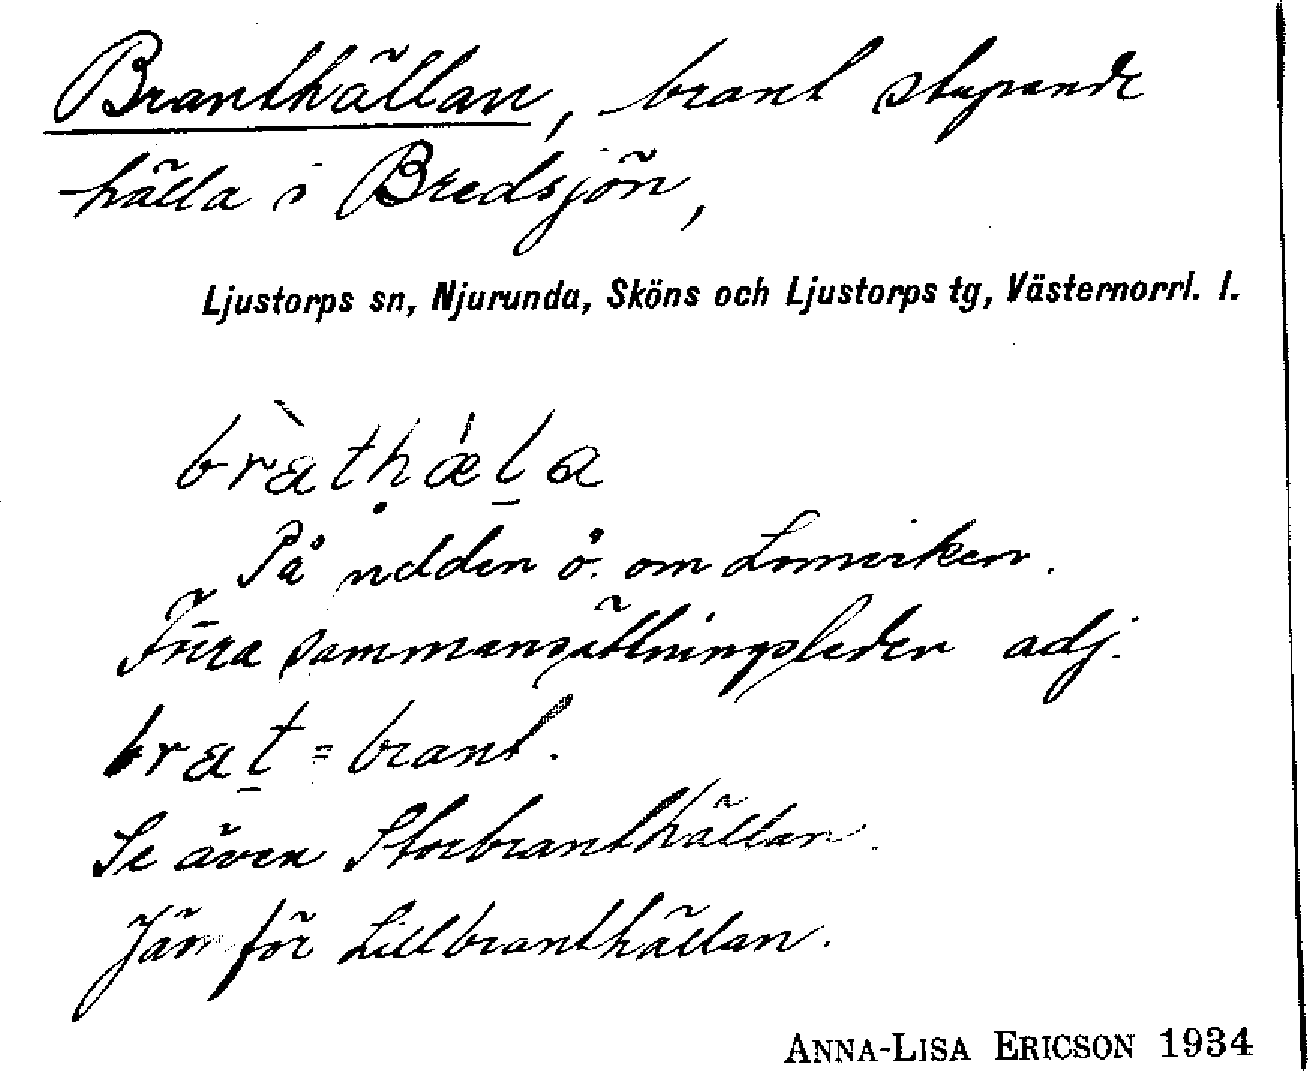 Branthällan, brant stupande
hälla i Bredsjön,
Ljustorps sn, Njurunda, Sköns och Ljustorps tg, Västernorrl. l.
bràthǽla
På udden ö. om Lomviken.
Förra sammansättningsleden adj.
brat = brant.
Se även Storbranthällan.
Jämför Lillbranthällan.
ANNA-LISA ERICSON 1934